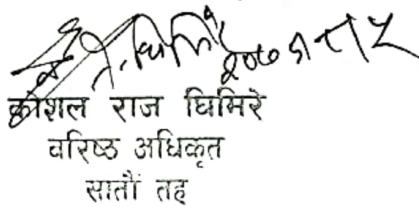 कौशल राज घिमिरे
वरिष्ठ अधिकृत
सातौं तह